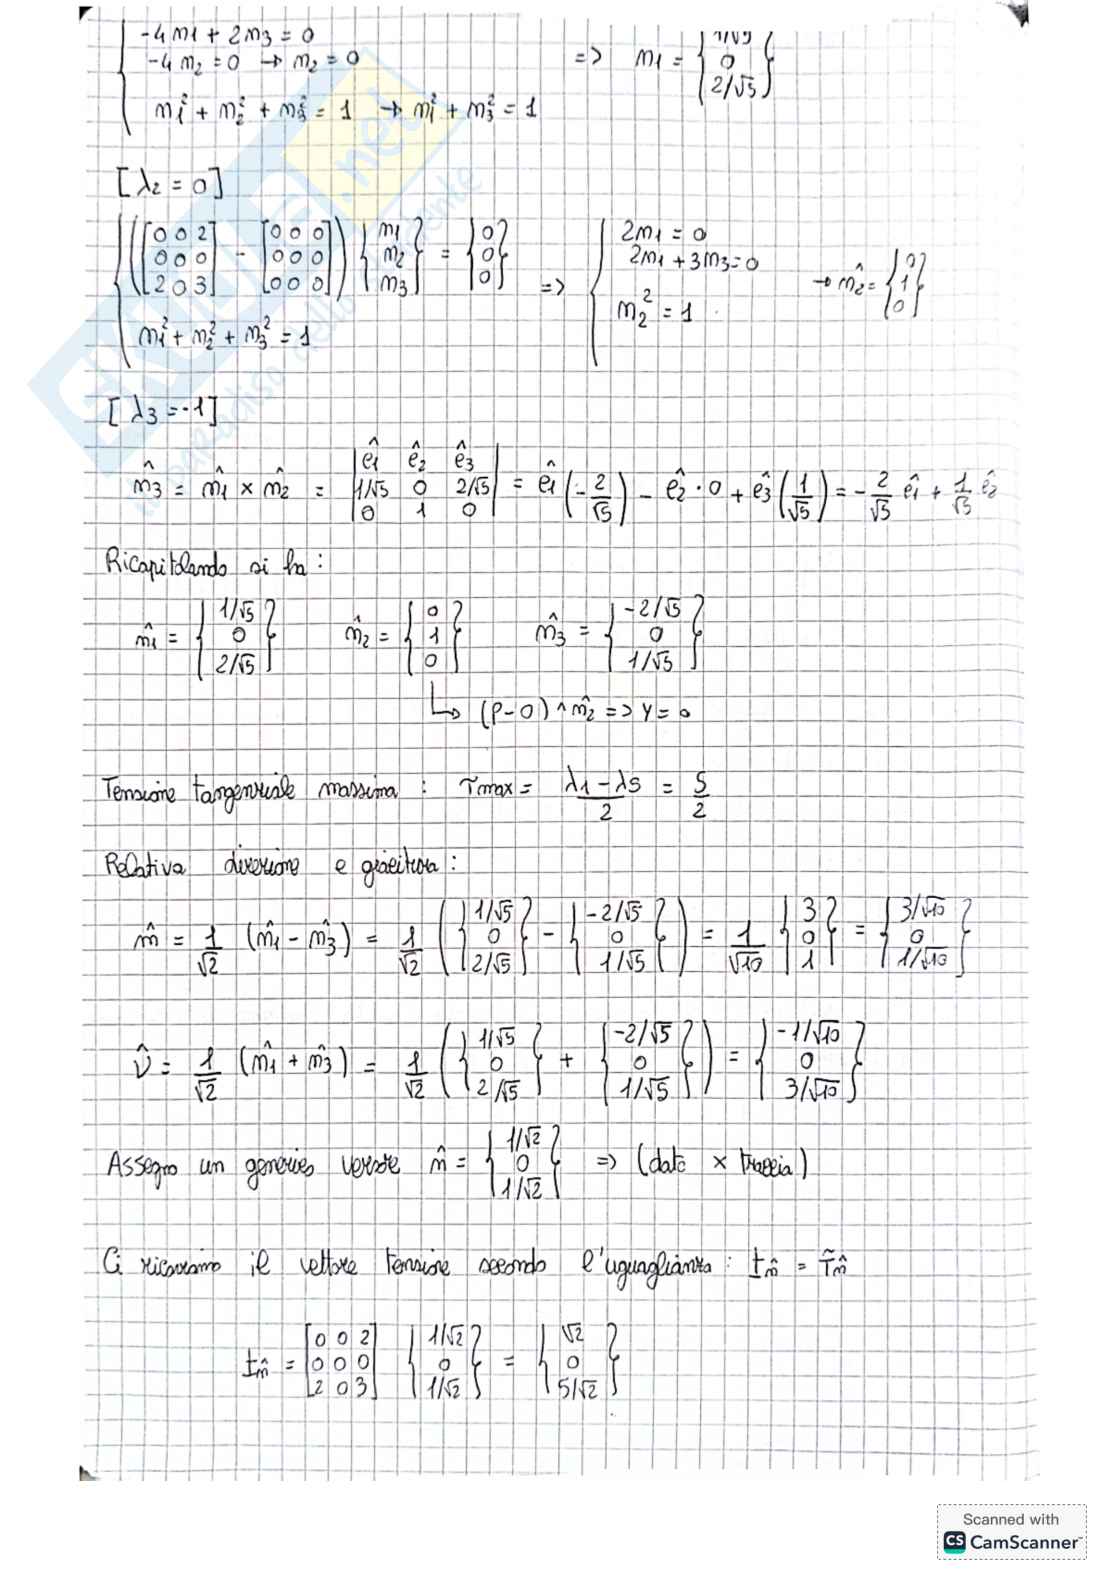 -4 n1 + 2 n3 = 0
-4 n2 = 0 → n2 = 0 => n1 = { 1/√5 0 2/√5 }
n1² + n2² + n3² = 1 → n1² + n3² = 1
[λ2 = 0]
([0 0 2; 0 0 0; 2 0 3] - [0 0 0; 0 0 0; 0 0 0]) {n1 n2 n3} = {0 0 0} => 2n1 = 0
2n1 + 3n3 = 0 → n̂2 = {0 1 0}
n1² + n2² + n3² = 1 n2² = 1
[λ3 = -1]
n̂3 = n̂1 × n̂2 = | ê1 ê2 ê3; 1/√5 0 2/√5; 0 1 0 | = ê1 (-2/√5) - ê2 · 0 + ê3 (1/√5) = -2/√5 ê1 + 1/√5 ê2
Ricapitolando si ha :
n̂1 = {1/√5 0 2/√5} n̂2 = {0 1 0} n̂3 = {-2/√5 0 1/√5}
↳ (P-O) ^ n̂2 => Y = 0
Tensione tangenziale massima : τmax = (λ1 - λ3)/2 = 5/2
Relativa direzione e giacitura :
m̂ = 1/√2 (n̂1 - n̂3) = 1/√2 ({1/√5 0 2/√5} - {-2/√5 0 1/√5}) = 1/√10 {3 0 1} = {3/√10 0 1/√10}
ν̂ = 1/√2 (n̂1 + n̂3) = 1/√2 ({1/√5 0 2/√5} + {-2/√5 0 1/√5}) = {-1/√10 0 3/√10}
Assegno un generico versore n̂ = {1/√2 0 1/√2} => (dato × traccia)
Ci ricaviamo il vettore tensione secondo l'uguaglianza : t n̂ = T̃ n̂
t n̂ = [0 0 2; 0 0 0; 2 0 3] {1/√2 0 1/√2} = {√2 0 5/√2}
Scanned with
CS CamScanner